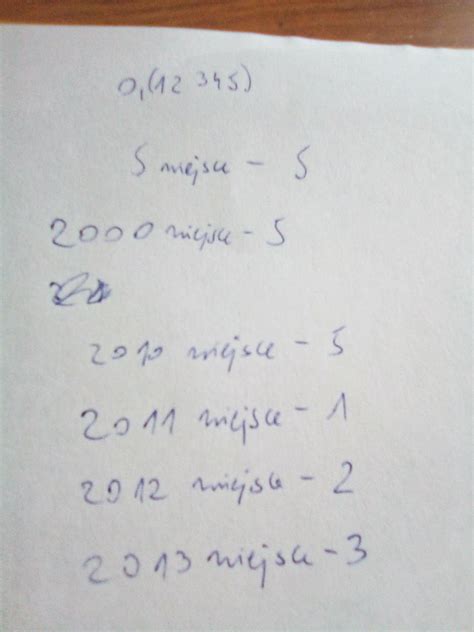 0,(12 345)
5 miejsce - 5
2000 miejsce - 5
2010 miejsce - 5
2011 miejsce - 1
2012 miejsce - 2
2013 miejsce - 3